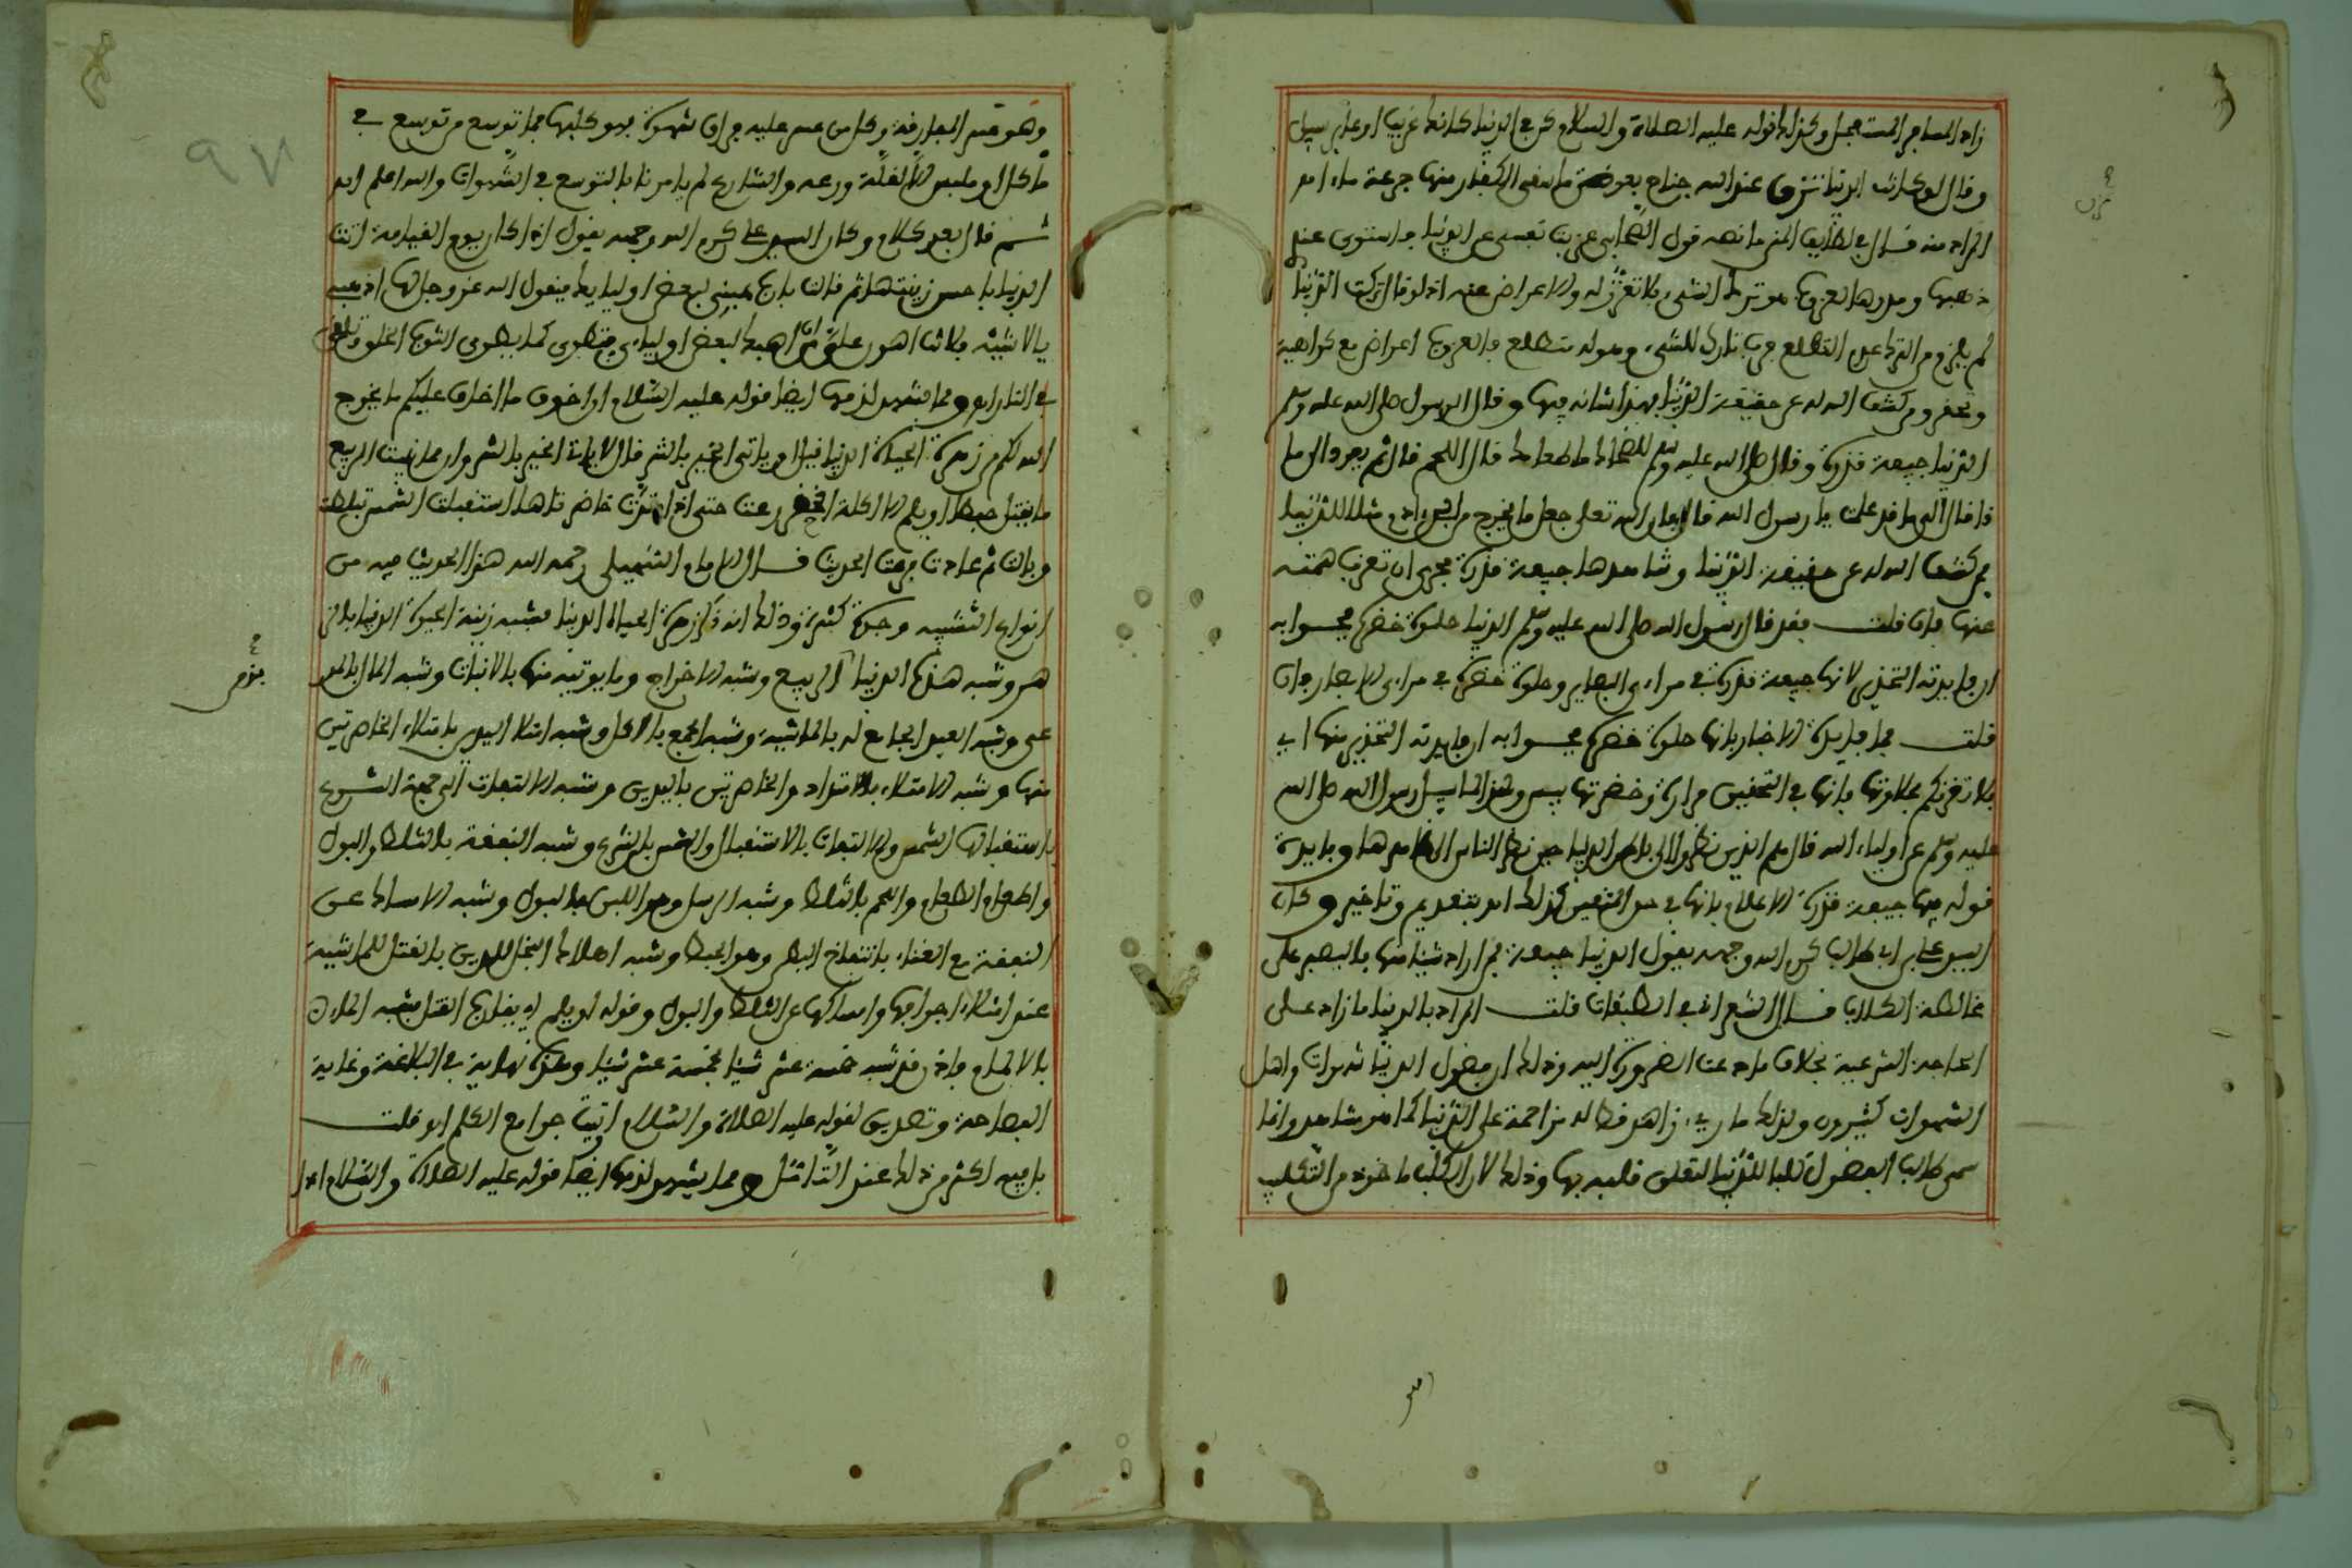 زاد المسافر المستعجل وكذلك قوله عليه الصلاة والسلام كن في الدنيا كانك غريب او عابر سبيل
وقال لو كانت الدنيا تزن عند الله جناح بعوضة ما سقى الكفار منها جرعة ماء اهـ
المراد منه قال في لطايف المنن ما نصه قول الصحابي عزبت نفسي عن الدنيا فاستوى عندي
ذهبها ومدرها العزوب هو ترك الشيء بلا تعزز له والاعراض عنه اذ لو قال تركت الدنيا
لم يلزم من الترك عدم التطلع فرب تارك للشيء وهو له متطلع والعزوب اعراض مع كراهية
ومن كشف الله له عن حقيقة الدنيا فهذا شانه فيها وقال الرسول صلى الله عليه وسلم
الدنيا جيفة قذرة وقال صلى الله عليه وسلم للضحاك ما طعامك قال اللحم قال ثم يعود الى ما
ذا قال الى ما قد علمت يا رسول الله قال فان الله تعلى جعل ما يخرج من ابن ادم مثلا للدنيا
فمن كشف الله له عن حقيقة الدنيا وشاهدها جيفة قذرة فحري ان تعزب همته
عنها فان قلت فقد قال رسول الله صلى الله عليه وسلم الدنيا حلوة خضرة فجوابه
ان فايدته التحذير لانها جيفة قذرة في مراءي البصاير وحلوة خضرة في مراءي الابصار فان
قلت فما فايدة الاخبار بانها حلوة خضرة فجوابه ان فايدته التحذير منها اي
فلا تغرنكم بحلاوتها فانها في التحقيق مرارة وخضرتها يبس ولهذا لما سيل رسول الله صلى الله
عليه وسلم عن اولياء الله قال هم الذين نظروا الى باطن الدنيا حين نظر الناس الى ظاهرها وفايدة
قوله فيها جيفة قذرة الاعلام بانها في حد التحقيق كذلك اهـ بتقديم وتاخير وكان
السيد علي بن ابي طالب كرم الله وجهه يقول الدنيا جيفة فمن اراد شيئا منها فاليصبر على
مخالطة الكلاب قال الشعراني في الطبقات قلت المراد بالدنيا ما زاد على
الحاجة الشرعية بخلاف ما دعت الضرورة اليه وذلك ان فضول الدنيا شهوات واهل
الشهوات كثيرون ولذلك ما ريء زاهد قط له مزاحمة على الدنيا كما هو مشاهد وانما
سمي طالب الفضول كلبا للدنيا لتعلق قلبه بها وذلك لان الكلب ماخوذ من التكلب
وهو قسم المعارفة وكل من عسر عليه فراق شهوة فهو كلبها فما توسع من توسع في
ماكل او ملبس الا لقلة ورعه والشارع لم يامرنا بالتوسع في الشهوات والله اعلم اهـ
ثم قال بعد كلام وكان السيد علي كرم الله وجهه يقول اذا كان يوم القيامة اتت
الدنيا باحسن زينتها ثم قالت يا رب هبني لبعض اوليايك فيقول الله عز وجل لها اذهبي
يا لا شيء فلانت اهون علي من ان اهبك لبعض اولياءي فتطوى كما يطوى الثوب الخلق وتلقى
في النار اهـ ومما يشهد لذمها ايضا قوله عليه السلام ان اخوف ما اخاف عليكم ما يخرج
الله لكم من زهرة الحياة الدنيا فيل او ياتي الخير بالشر قال لا ياتي الخير بالشر وان مما ينبت الربيع
ما يقتل حبطا او يلم الا اكلة الخضر رعت حتى اذا امتدت خاصرتاها استقبلت الشمس ثلطت
وبالت ثم عادت فرعت الحديث قال الامام السهيلي رحمه الله هذا الحديث فيه من
انواع التشبيه وجوه كثيرة وذلك انه ذكر زهرة الحياة الدنيا فشبه زينة الحيوة الدنيا بالز
هر وشبه هذه الدنيا بالربيع وشبه الاخراج وما يوتيه منها بالانبات وشبه المال بالمر
عى وشبه العبد الجامع له بالماشية وشبه الجمع بالاكل وشبه امتلا اليدين بامتلاء الخاصرتين
منها وشبه الامتلاء بالامتداد والخاصرتين باليدين وشبه الالتفات الى جمعة الشرع
باستقبالها الشمس والالتفات بالاستقبال والشمس بالشرع وشبه النفقة بالثلط والبول
واطعام الطعام واللحم بالثلط وشبه الرسل وهو اللبن بالبول وشبه الامساك عن
النفقة مع الغناء بانتفاخ البطن وهو الحبط وشبه اهلاك البخل للدين بالقتل للماشية
عند امتلاء اجوافها وامساكها عن الثلط والبول وقوله او يلم اي يقارب القتل فشبه المقارن
بالالمام فاذن قد شبه خمسة عشر شيئا بخمسة عشر شيئا وهذه نهاية في البلاغة وغاية
الفصاحة وتصديق لقوله عليه الصلاة والسلام اوتيت جوامع الكلم اهـ قلت
بل فيه اكثر من ذلك عند التامل ومما يشهد لذمها ايضا قوله عليه الصلاة والسلام اذا